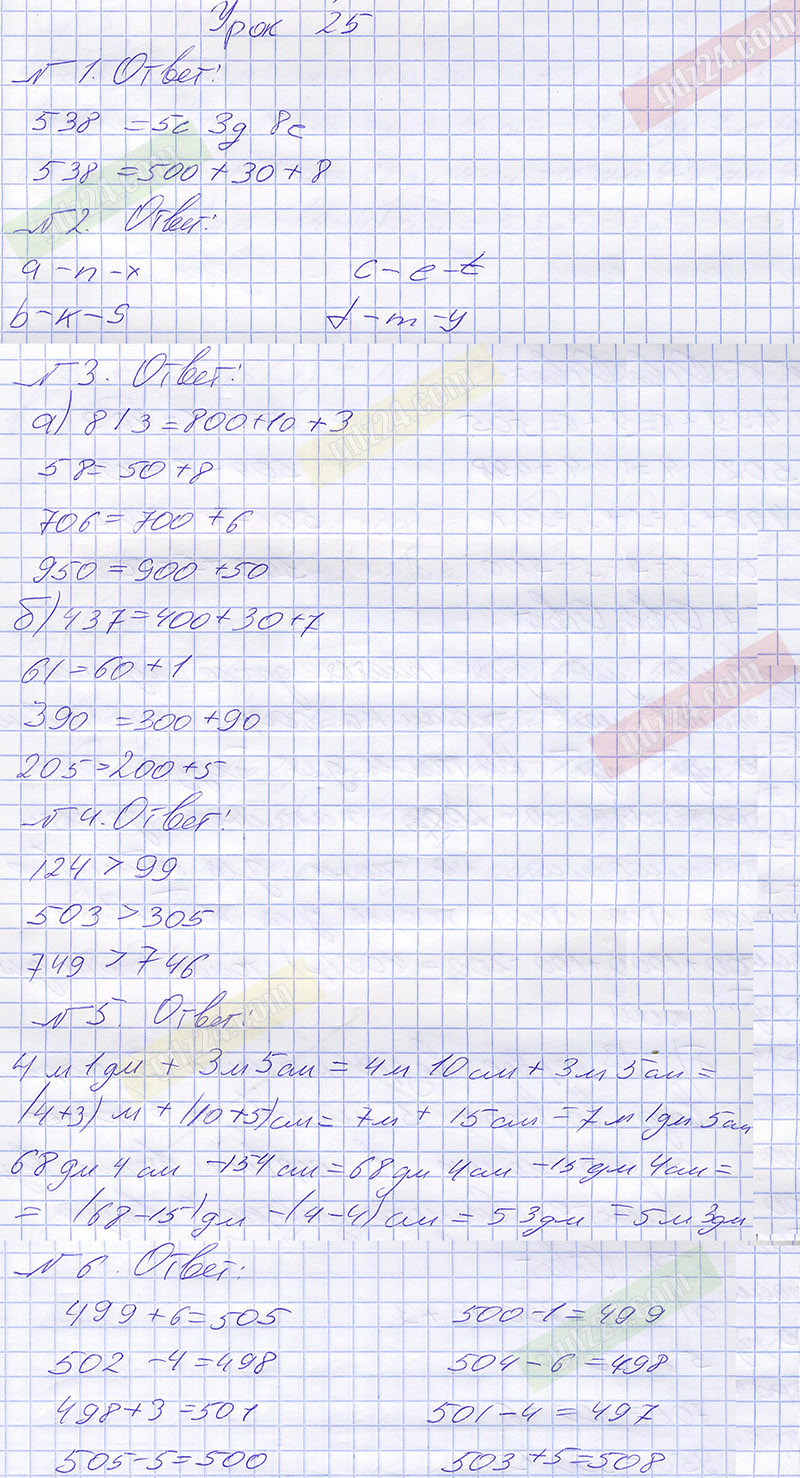 Урок 25
№ 1. Ответ:
538 = 5с 3д 8е
538 = 500 + 30 + 8
№ 2. Ответ:
a - n - x
c - e - t
b - к - s
d - m - y
№ 3. Ответ:
а) 813 = 800 + 10 + 3
58 = 50 + 8
706 = 700 + 6
950 = 900 + 50
б) 437 = 400 + 30 + 7
61 = 60 + 1
390 = 300 + 90
205 = 200 + 5
№ 4. Ответ:
124 > 99
503 > 305
749 > 746
№ 5. Ответ:
4 м 1 дм + 3 м 5 см = 4 м 10 см + 3 м 5 см =
(4+3) м + (10+5) см = 7 м + 15 см = 7 м 1 дм 5 см
68 дм 4 см - 154 см = 68 дм 4 см - 15 дм 4 см =
= (68 - 15) дм - (4 - 4) см = 53 дм = 5 м 3 дм
№ 6. Ответ:
499 + 6 = 505
500 - 1 = 499
502 - 4 = 498
504 - 6 = 498
498 + 3 = 501
501 - 4 = 497
505 - 5 = 500
503 + 5 = 508
gdz24.com
gdz24.com
gdz24.com
gdz24.com
gdz24.com
gdz24.com